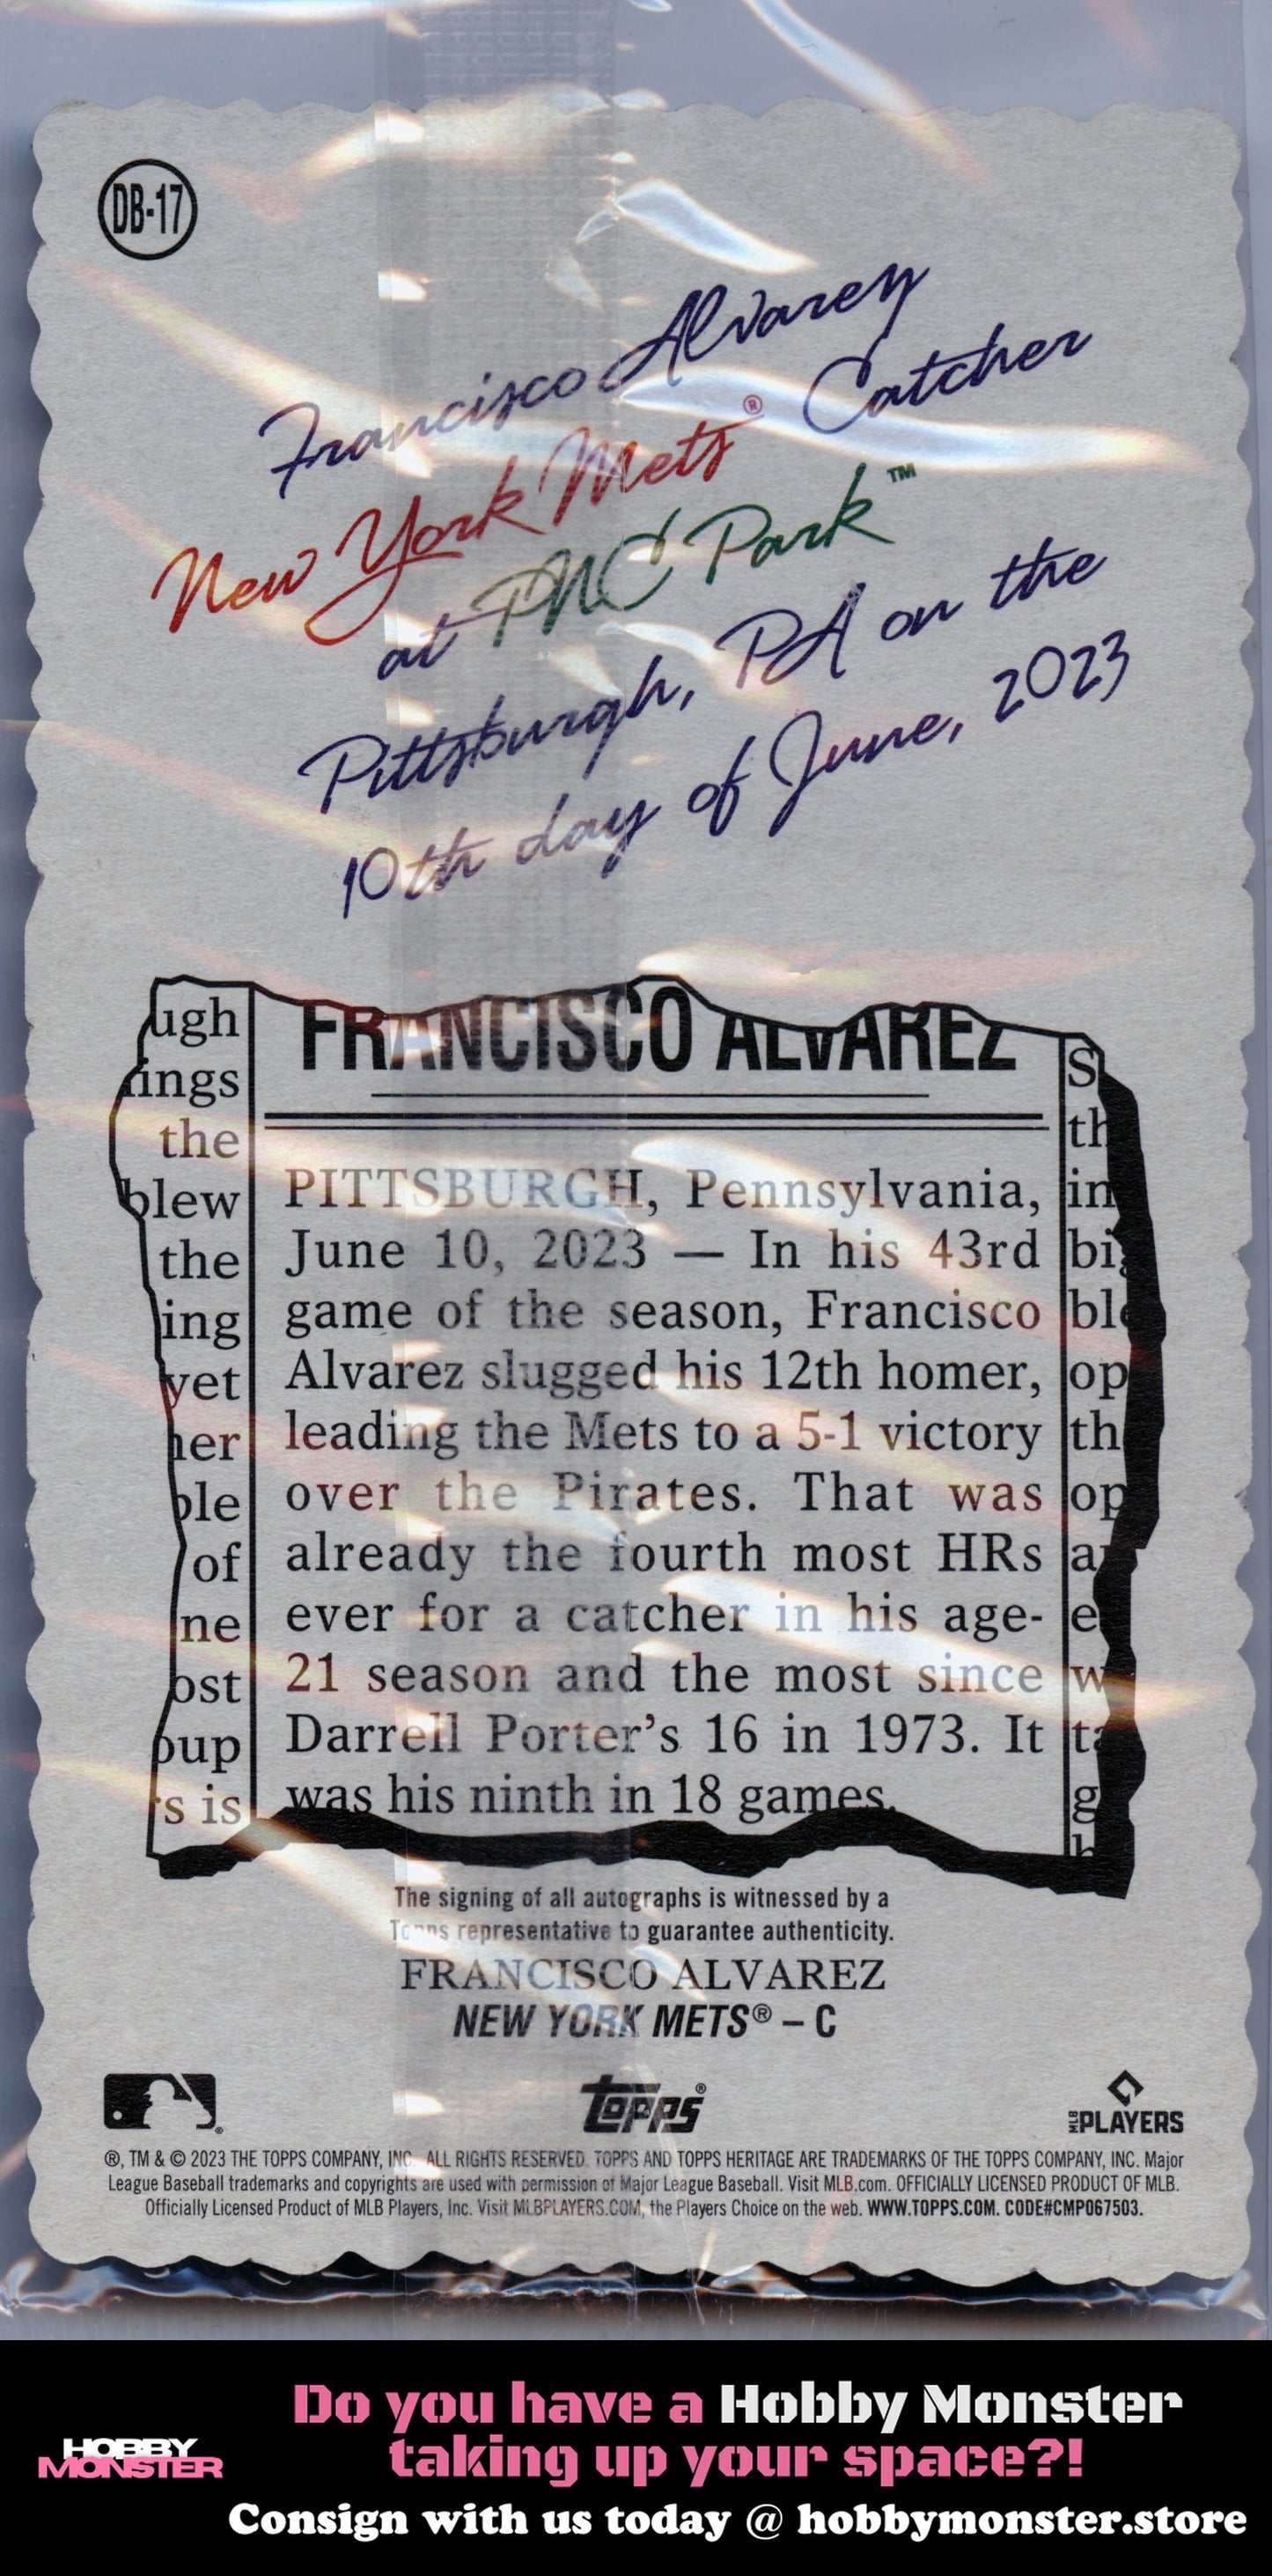 DB-17
Francisco Alvarez
New York Mets® Catcher
at PNC Park™
Pittsburgh, PA on the
10th day of June, 2023
FRANCISCO ALVAREZ
PITTSBURGH, Pennsylvania,
June 10, 2023 — In his 43rd
game of the season, Francisco
Alvarez slugged his 12th homer,
leading the Mets to a 5-1 victory
over the Pirates. That was
already the fourth most HRs
ever for a catcher in his age-
21 season and the most since
Darrell Porter's 16 in 1973. It
was his ninth in 18 games.
ugh
ings
the
blew
the
ing
yet
her
ble
of
ne
ost
oup
's is
The signing of all autographs is witnessed by a
Topps representative to guarantee authenticity.
FRANCISCO ALVAREZ
NEW YORK METS® – C
Topps®
MLB PLAYERS
®, TM & © 2023 THE TOPPS COMPANY, INC. ALL RIGHTS RESERVED. TOPPS AND TOPPS HERITAGE ARE TRADEMARKS OF THE TOPPS COMPANY, INC. Major
League Baseball trademarks and copyrights are used with permission of Major League Baseball. Visit MLB.com. OFFICIALLY LICENSED PRODUCT OF MLB.
Officially Licensed Product of MLB Players, Inc. Visit MLBPLAYERS.COM, the Players Choice on the web. WWW.TOPPS.COM. CODE#CMP067503.
HOBBY
MONSTER
Do you have a Hobby Monster
taking up your space?!
Consign with us today @ hobbymonster.store